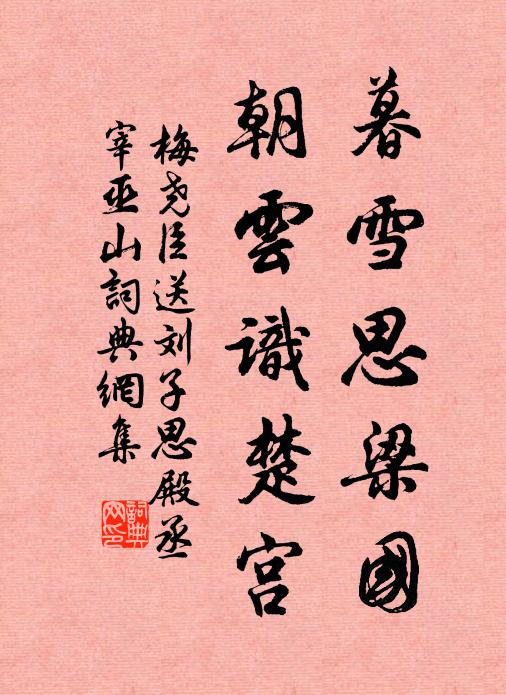 暮雪思梁國
朝雲識楚宫
梅尧臣送刘子思殿丞
宰巫山詞典網集
詞典
网印